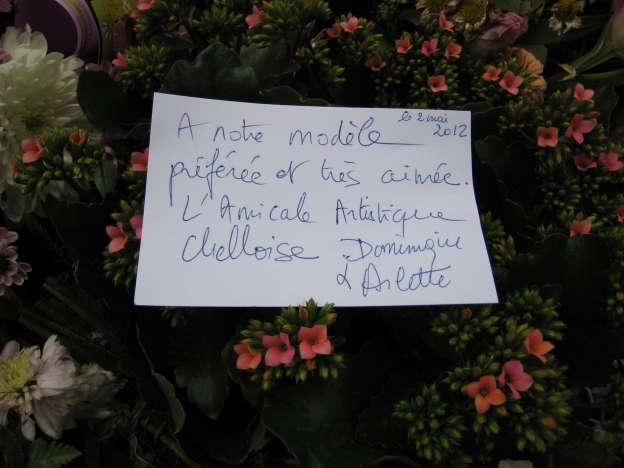 le 2 mai
2012
A notre modèle
préférée et très aimée.
L'Amicale Artistique
Chelloise Dominique
& Arlette